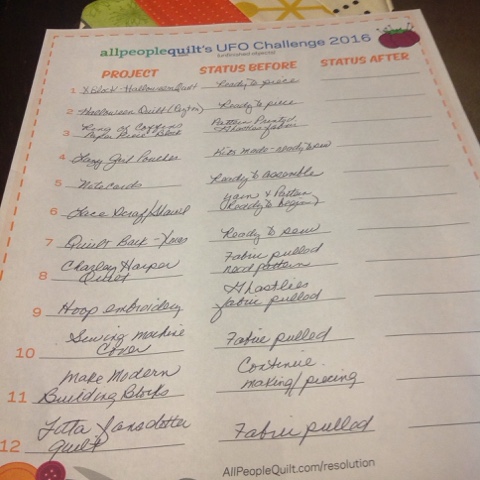 allpeoplequilt's UFO Challenge 2016
(unfinished objects)
PROJECT STATUS BEFORE STATUS AFTER
1 Block-Halloween Quilt Ready to piece
2 Halloween Quilt Ready to piece
3 Ring of Coffins Pattern Printed
Paper Piece Block Ghastlies fabric
4 Lazy Girl Pouches Kits made-ready to sew
5 Notecards Ready to assemble
6 Lace Scarf/Shawl Yarn & Pattern
(Ready to begin)
7 Quilt Back-Xmas Ready to sew
8 Charley Harper Fabric pulled
Quilt need pattern
9 Hoop embroidery Ghastlies
fabric pulled
10 Sewing machine Fabric pulled
Cover
11 Make Modern Continue
Building Blocks making/piecing
12 Lotta Jansdotter Fabric pulled
quilt
AllPeopleQuilt.com/resolution